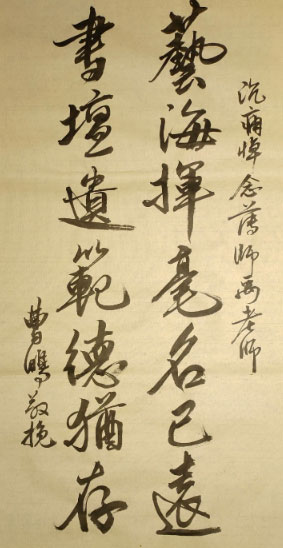 沉痛悼念薄师禹老师
藝海揮毫名已遠
書壇遺範德猶存
曹鵬敬挽